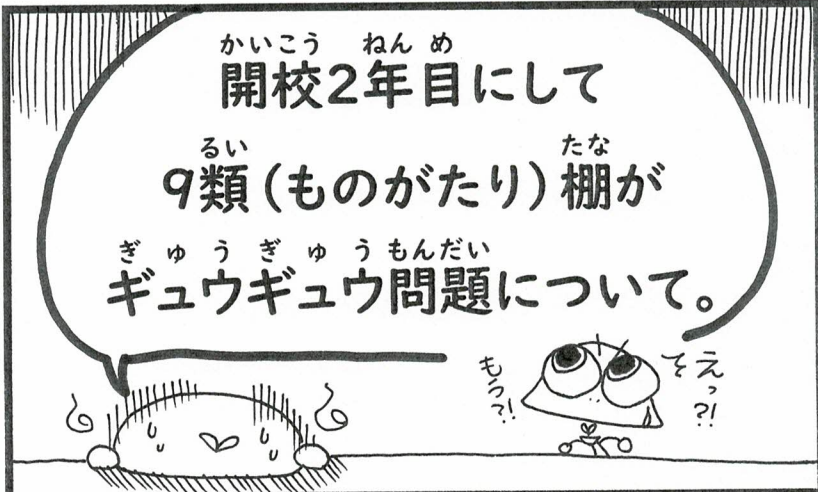 かいこう ねんめ
開校2年目にして
るい たな
9類(ものがたり)棚が
ぎゅうぎゅうもんだい
ギュウギュウ問題について。
えっ?!
もう?!